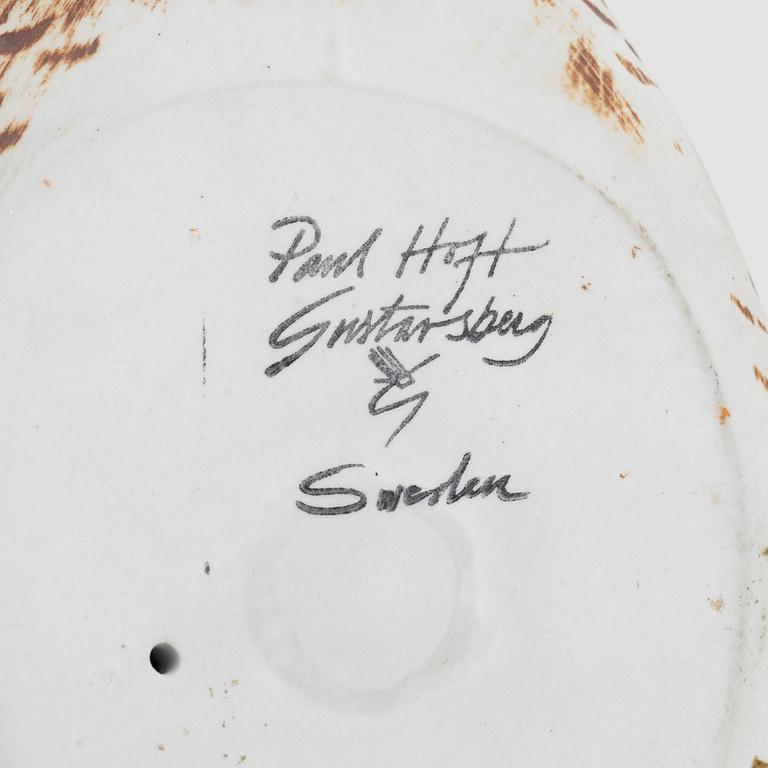 Paul Hoff
Gustavsberg
G
Sweden